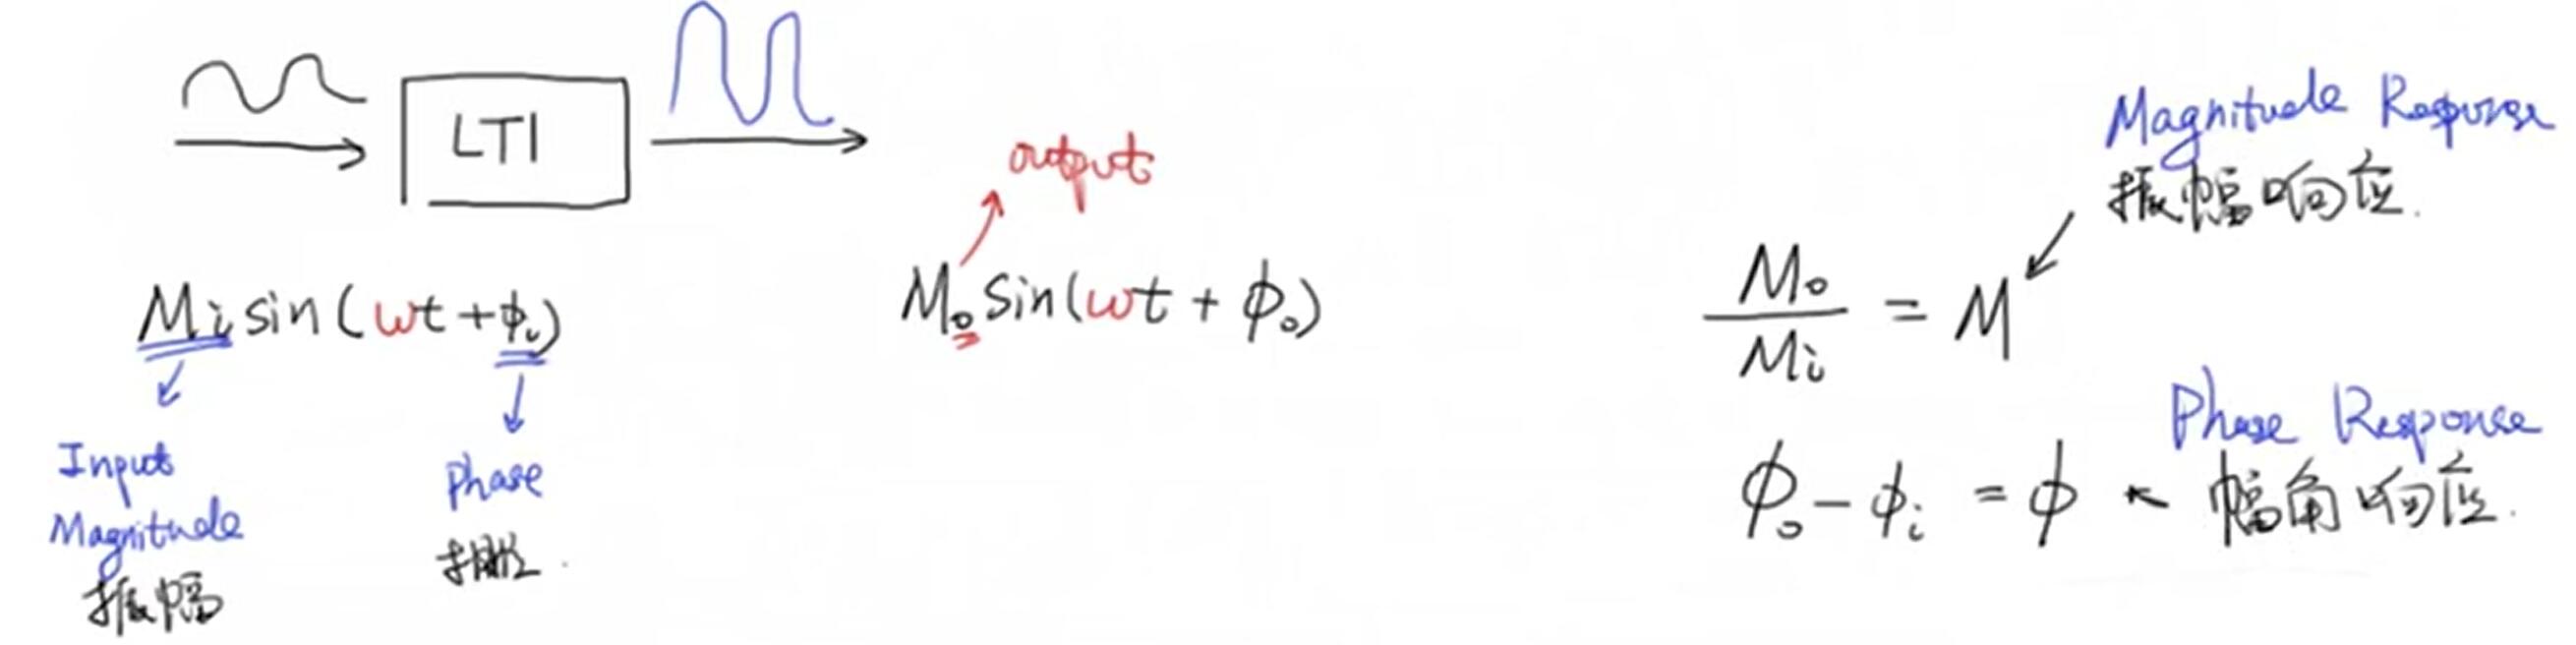 LTI
output
Mᵢ sin(ωt + ϕᵢ)
Input
Magnitude
振幅
Phase
M₀ sin(ωt + ϕ₀)
Magnitude Response
振幅响应.
M₀/Mᵢ = M
Phase Response
ϕ₀ - ϕᵢ = ϕ ↖ 幅角响应.